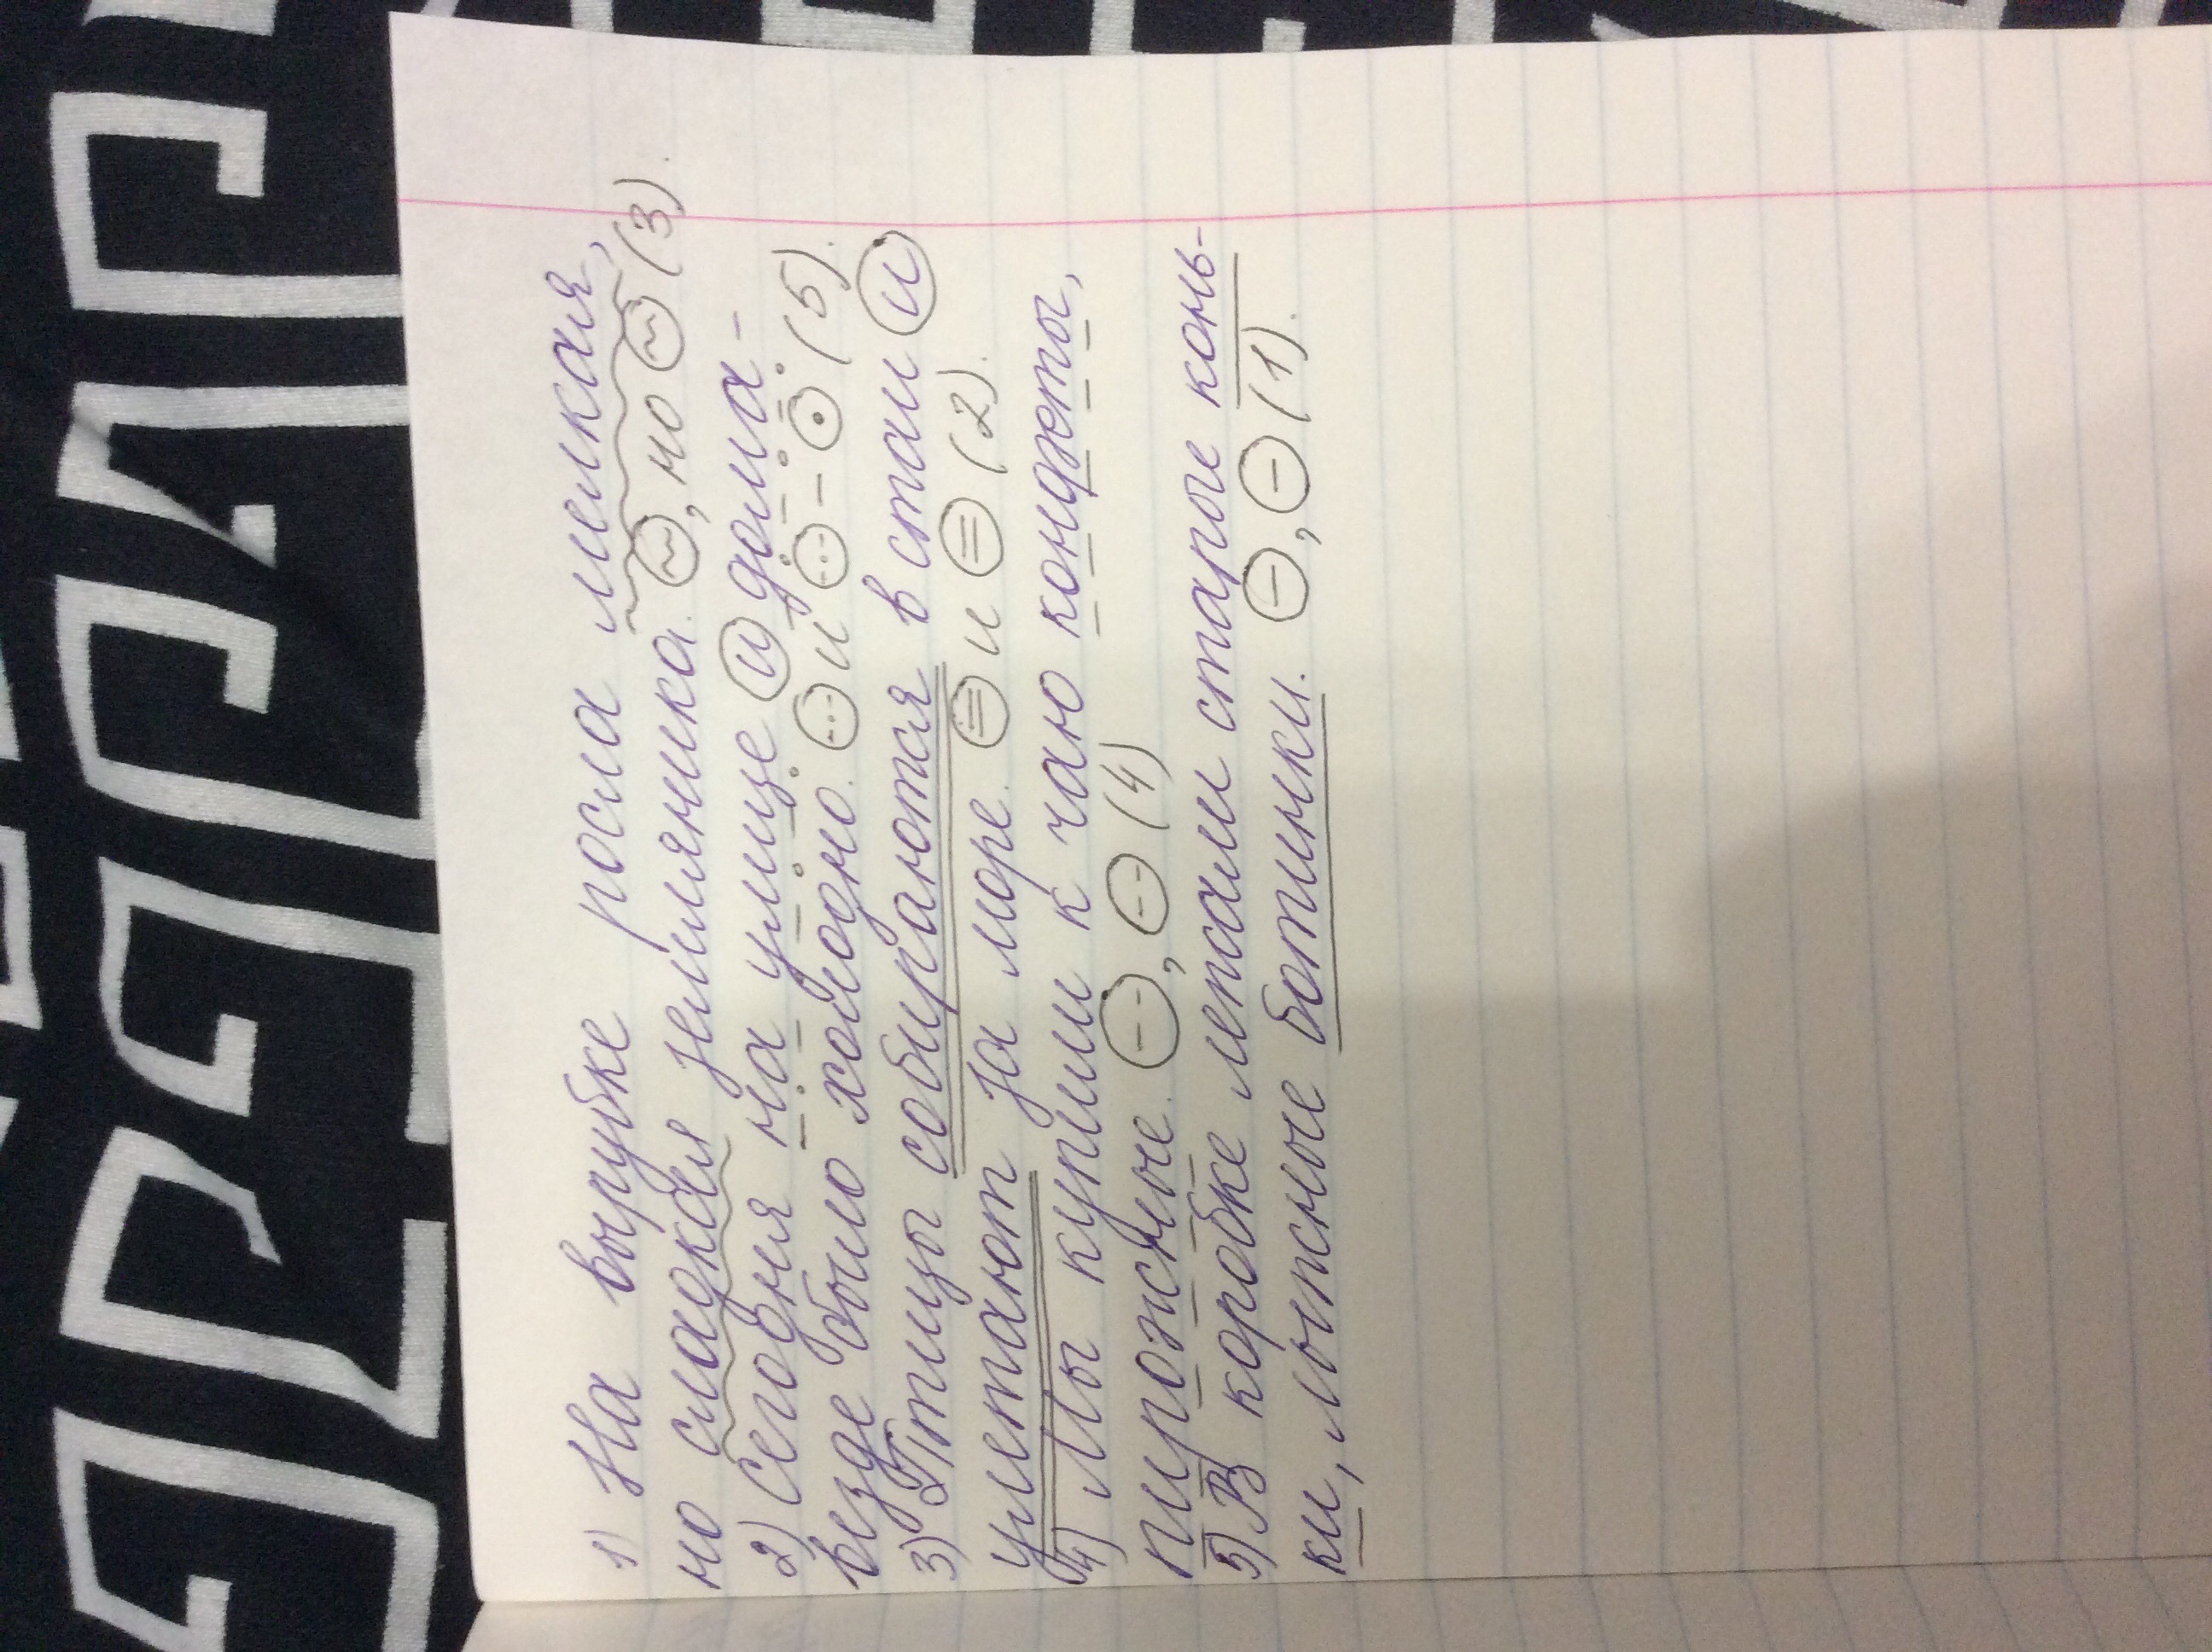 1) На вырубке росла мелкая,
но сладкая земляника. , но (3).
2) Сегодня на улице и дома -
везде было холодно. и - (5).
3) Птицы собираются в стаи и
улетают за море. и (2).
4) Мы купили к чаю конфеты,
пирожные. , (4)
5) В коробке лежали старые конь-
ки, лыжные ботинки. , (1).